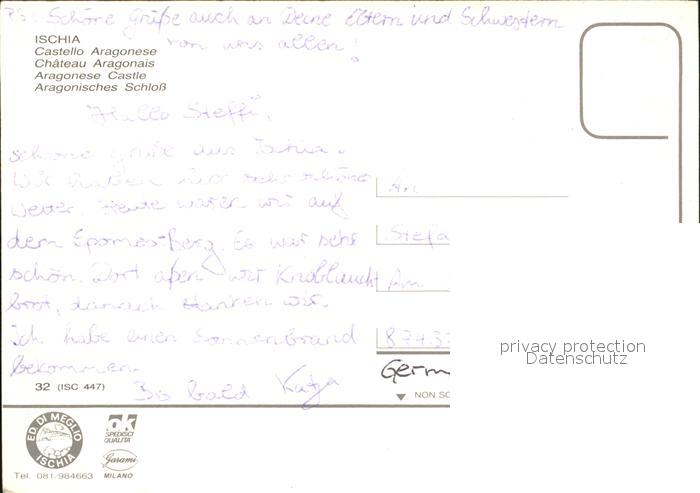 P.S. Schöne Grüße auch an Deine Eltern und Schwestern
von uns allen!
ISCHIA
Castello Aragonese
Château Aragonais
Aragonese Castle
Aragonisches Schloß
Hallo Steffi,
schöne Grüße aus Ischia.
Wir haben hier sehr schönes
Wetter. Heute waren wir auf
dem Epomeo-Berg. Es war sehr
schön. Dort aßen wir Knoblauch
brot, danach wir.
Ich habe einen Sonnenbrand
bekommen.
Bis bald Katja
An
Stefa
Am
Germ
privacy protection
Datenschutz
32 (ISC 447)
NON SC
ED. DI MEGLIO
ISCHIA
Tel. 081/984663
ok
SPEDISCI
QUALITÀ
Garami
MILANO